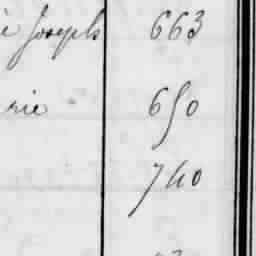 è Joseph 663
rie 650
740